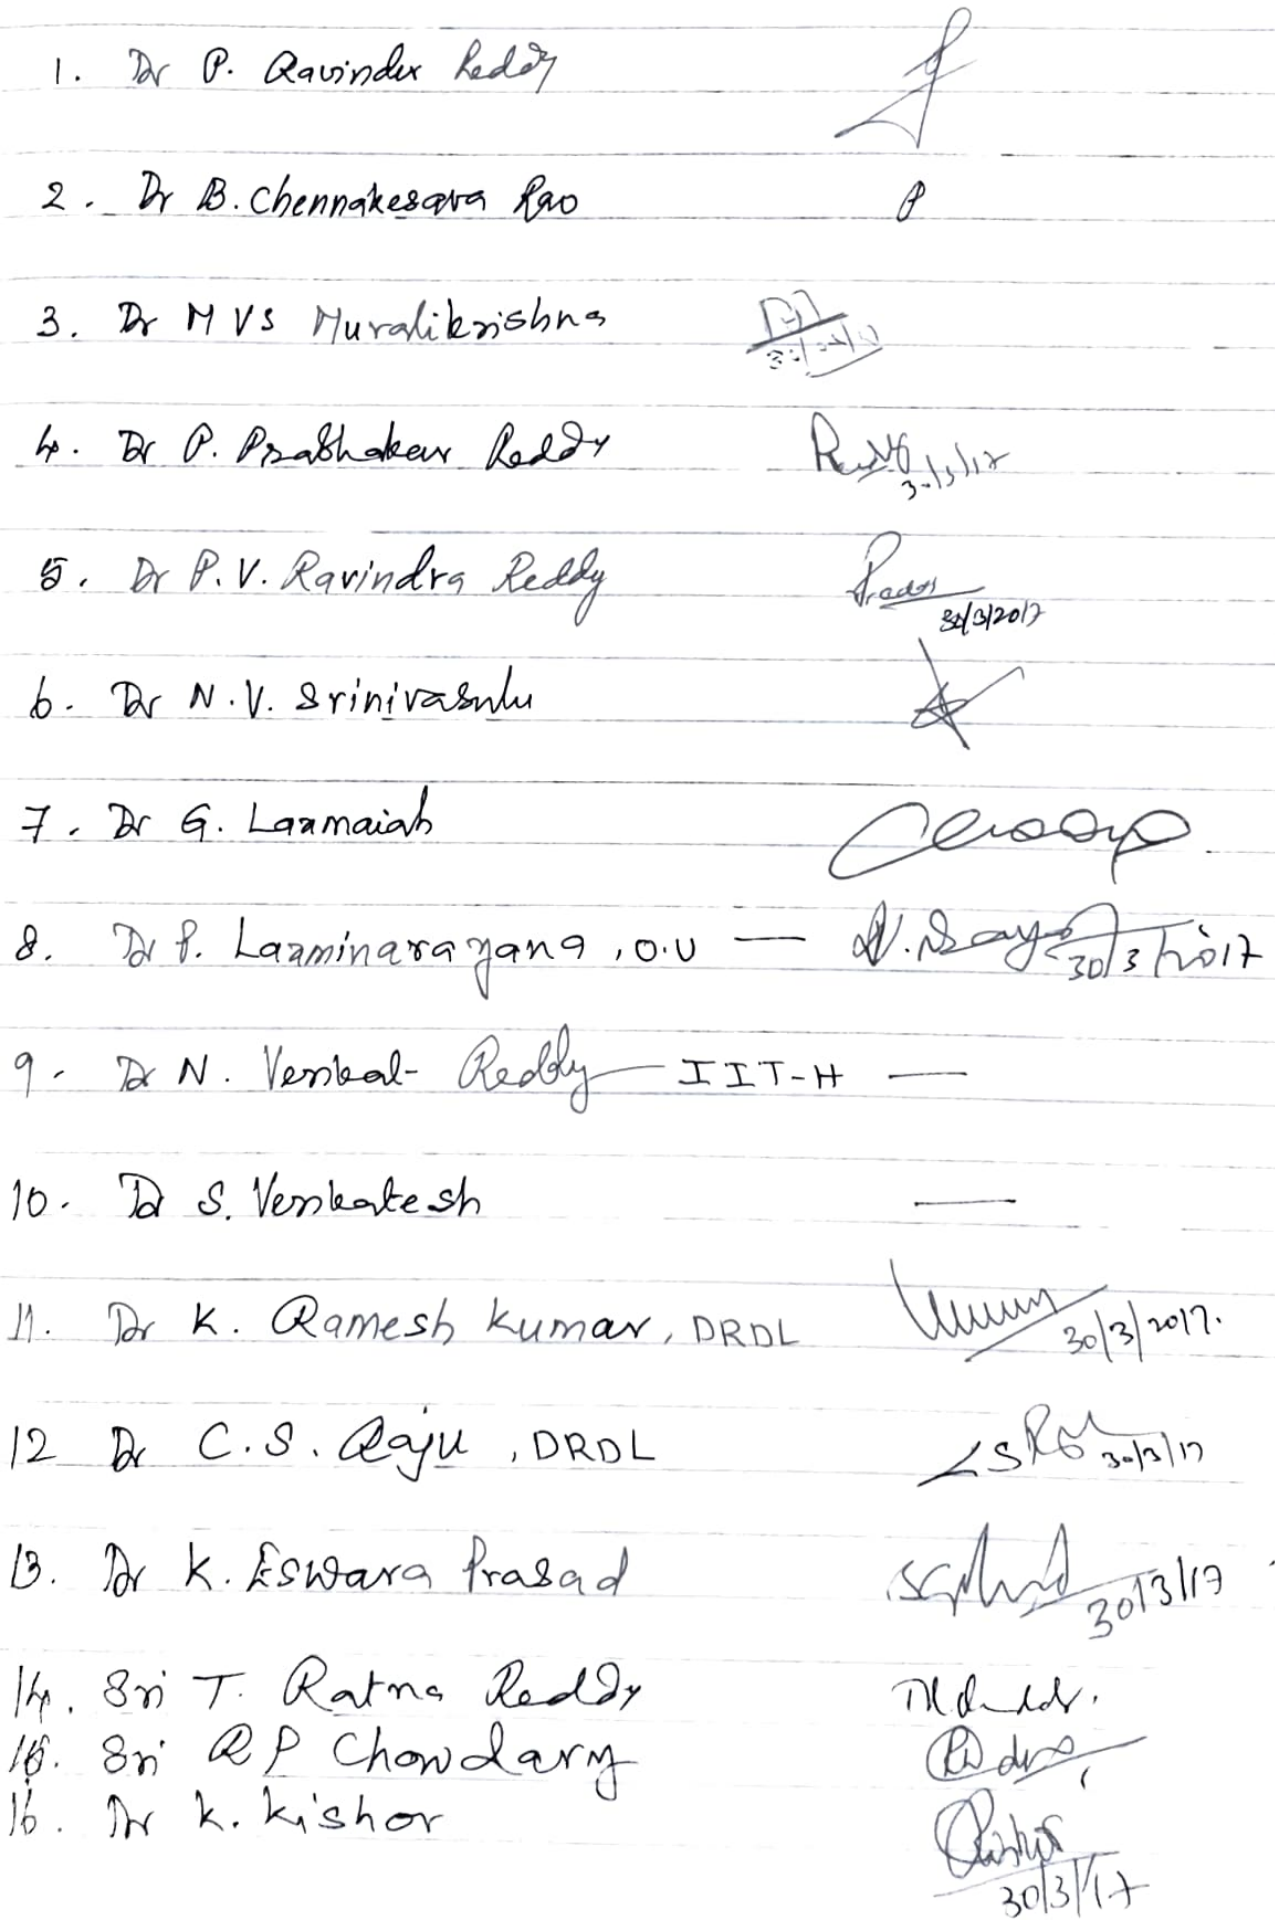 1. Dr P. Ravinder Reddy
2. Dr B. Chennakesava Rao P
3. Dr M V S Muralikrishna
4. Dr P. Prabhakar Reddy 30/3/17
5. Dr P. V. Ravindra Reddy 30/3/2017
6. Dr N. V. Srinivasulu
7. Dr G. Laxmaiah
8. Dr P. Laxminarayana, O.U — 30/3/2017
9. Dr N. Venkat Reddy — IIT-H —
10. Dr S. Venkatesh —
11. Dr K. Ramesh Kumar, DRDL 30/3/2017.
12 Dr C. S. Raju, DRDL 30/3/17
13. Dr K. Eswara Prasad 30/3/17
14. Sri T. Ratna Reddy
15. Sri R P Chowdary
16. Dr K. Kishor 30/3/17